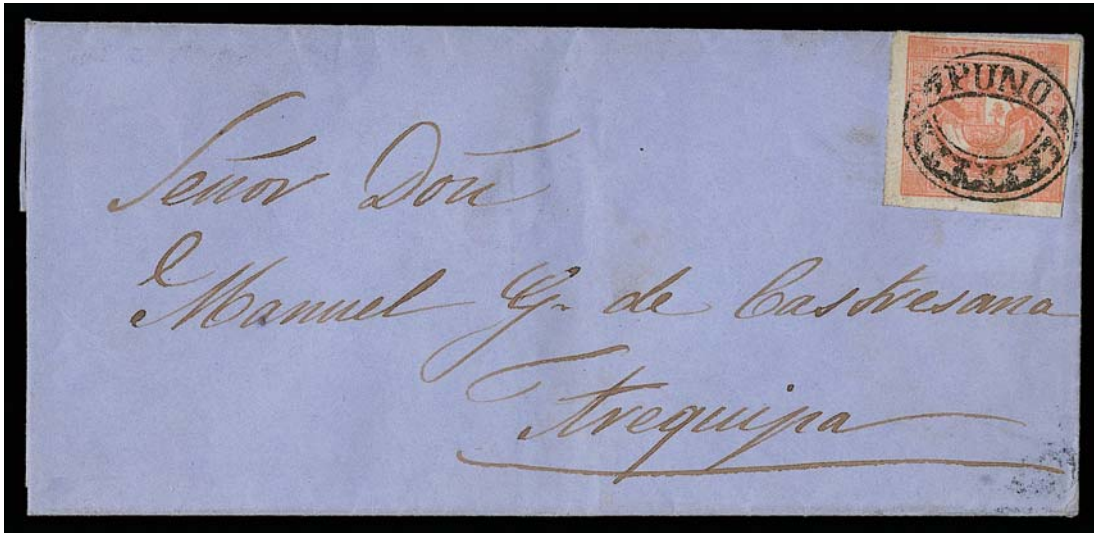 PORTE FRANCO
PUNO
Señor Don
Manuel G. de Castresana
Arequipa